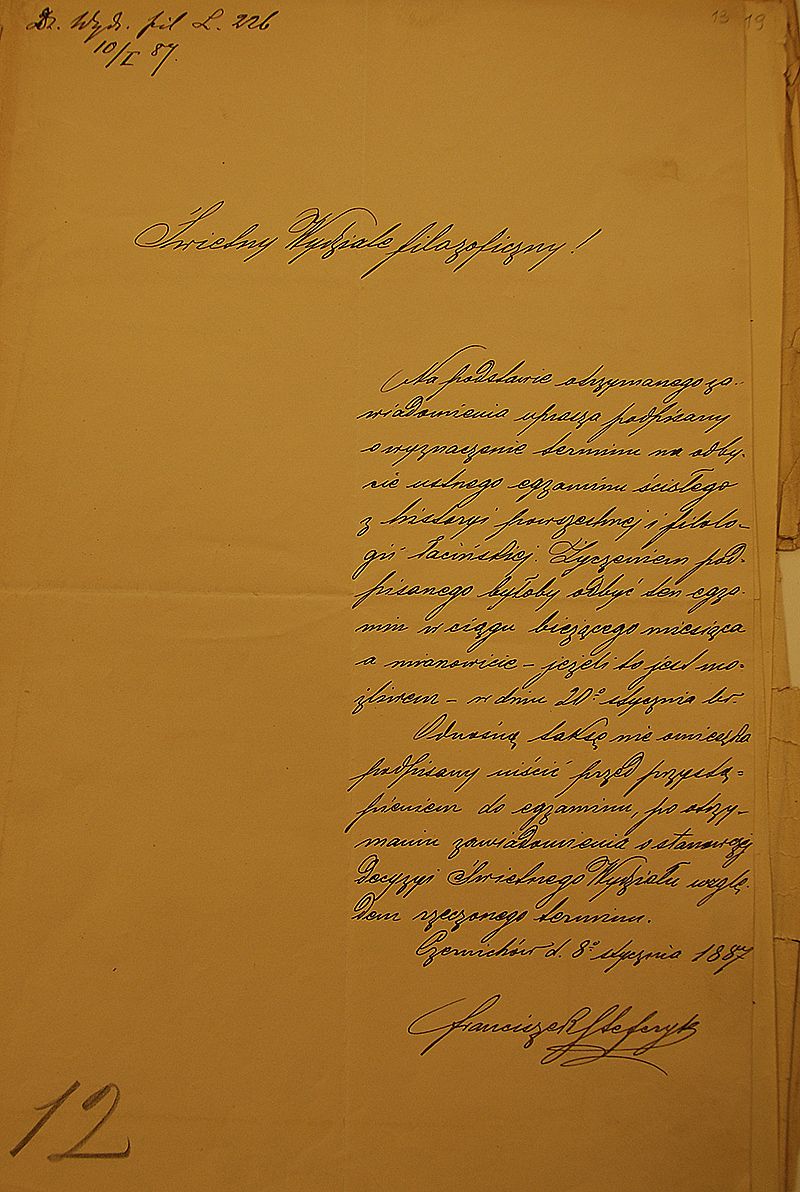 Dz. Wydz. fil L. 226
10/I 87.
13 19
Świetny Wydziale filozoficzny!
Na podstawie otrzymanego za-
wiadomienia uprasza podpisany
o wyznaczenie terminu na odby-
cie ustnego egzaminu ścisłego
z historyi powszechnej i filolo-
gii łacińskiej. Życzeniem pod-
pisanego byłoby odbyć ten egza-
min w ciągu bieżącego miesiąca
a mianowicie – jeżeli to jest mo-
żliwem – w dniu 20º stycznia br.
Odnośną taksę nie omieszka
podpisany uiścić przed przystą-
pieniem do egzaminu, po otrzy-
maniu zawiadomienia o stanowczej
decyzyi Świetnego Wydziału wzglę-
dem rzeczonego terminu.
Czernichów d. 8º stycznia 1887
Franciszek Stefczyk
12